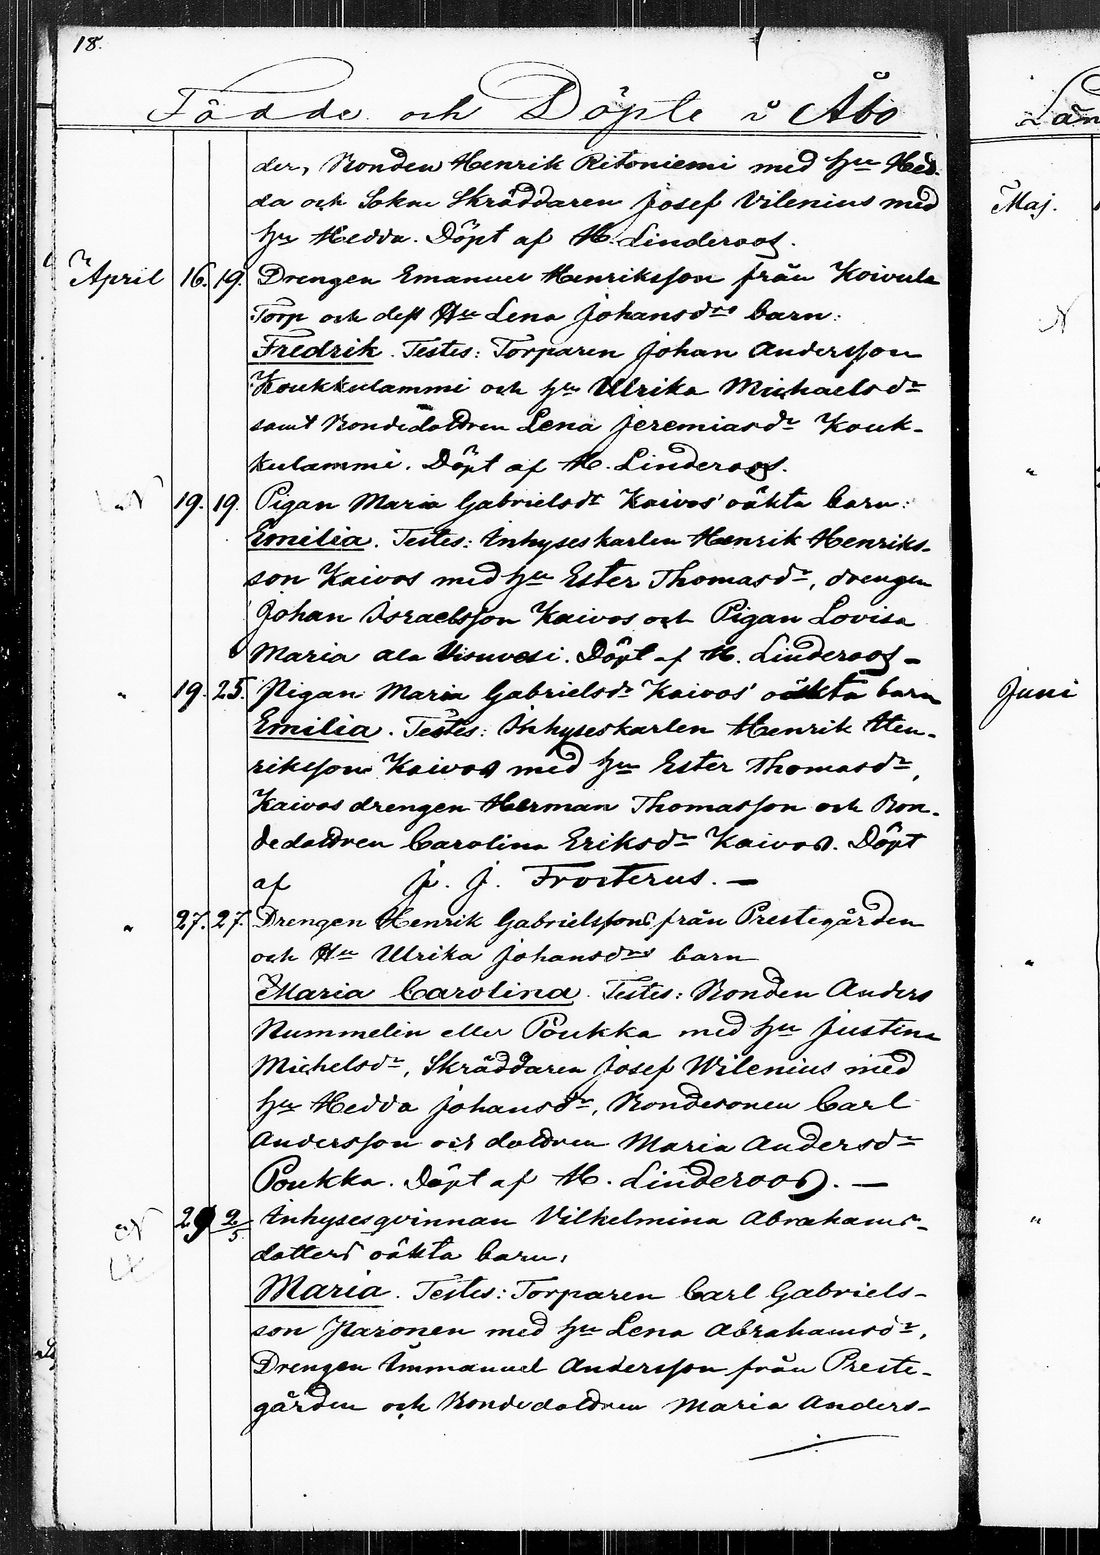 18.
Födde och Döpte i Åbo
der, Bonden Henrik Ritoniemi med hu Hed-
da och Sokne Skräddaren Josef Vilenius med
hu Hedda. Döpt af H. Linderoos.
April 16. 19. Drengen Emanuel Henriksson från Koivula
Torp och dess Hu Lena Johansdrs barn:
Fredrik. Testes: Torparen Johan Andersson
Koukkulammi och hu Ulrika Michaelsdr
samt Bondedottren Lena Jeremiasdr Kouk-
kulammi. Döpt af H. Linderoos.
19. 19. Pigan Maria Gabrielsdr Kaivos' oäkta barn:
Emilia. Testes: Inhyseskarlen Henrik Henriks-
son Kaivos med hu Ester Thomasdr, drengen
Johan Israelsson Kaivos och Pigan Lovisa
Maria Ala Visuvesi. Döpt af H. Linderoos –
" 19. 25. Pigan Maria Gabrielsdr Kaivos' oäkta barn
Emilia. Testes: Inhyseskarlen Henrik Hen-
riksson Kaivos med hu Ester Thomasdr,
Kaivos drengen Herman Thomasson och Bon-
dedottren Carolina Eriksdr Kaivos. Döpt
af J. J. Frosterus. –
" 27. 27. Drengen Henrik Gabrielssons från Prestegården
och Hu Ulrika Johansdrs barn
Maria Carolina. Testes: Bonden Anders
Nummelin eller Poukka med hu Justina
Michelsdr, Skräddaren Josef Wilenius med
hu Hedda Johansdr, Bondesonen Carl
Andersson och dottren Maria Andersdr
Poukka. Döpt af H. Linderoos. –
29 2/5 Inhysesqvinnan Vilhelmina Abrahams-
dotters oäkta barn:
Maria. Testes: Torparen Carl Gabriels-
son Paronen med hu Lena Abrahamsdr,
Drengen Immanuel Andersson från Preste-
gården och Bondedottren Maria Anders-
Maj.
N
"
Juni
"
"